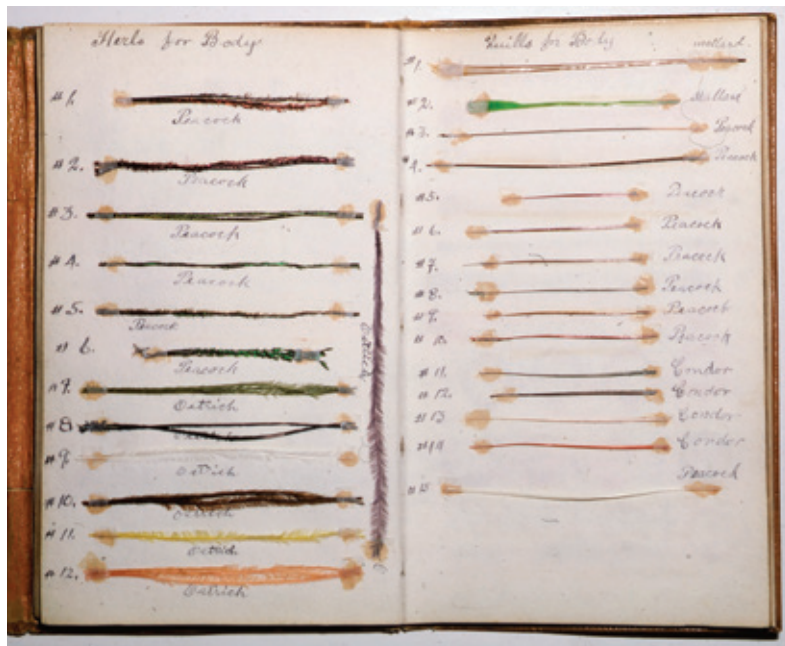 Herls for Body
#1.
Peacock
#2.
Peacock
#3.
Peacock
#4.
Peacock
#5.
Peacock
#6.
Peacock
#7.
Ostrich
#8
Ostrich
#9.
Ostrich
#10.
Ostrich
#11.
Ostrich
#12.
Ostrich
Ostrich
Quills for Body
#1.
#2. Mallard
#3. Peacock
#4. Peacock
#5. Peacock
#6. Peacock
#7. Peacock
#8. Peacock
#9. Peacock
#10. Peacock
#11. Condor
#12. Condor
#13 Condor
#14 Condor
#15 Peacock